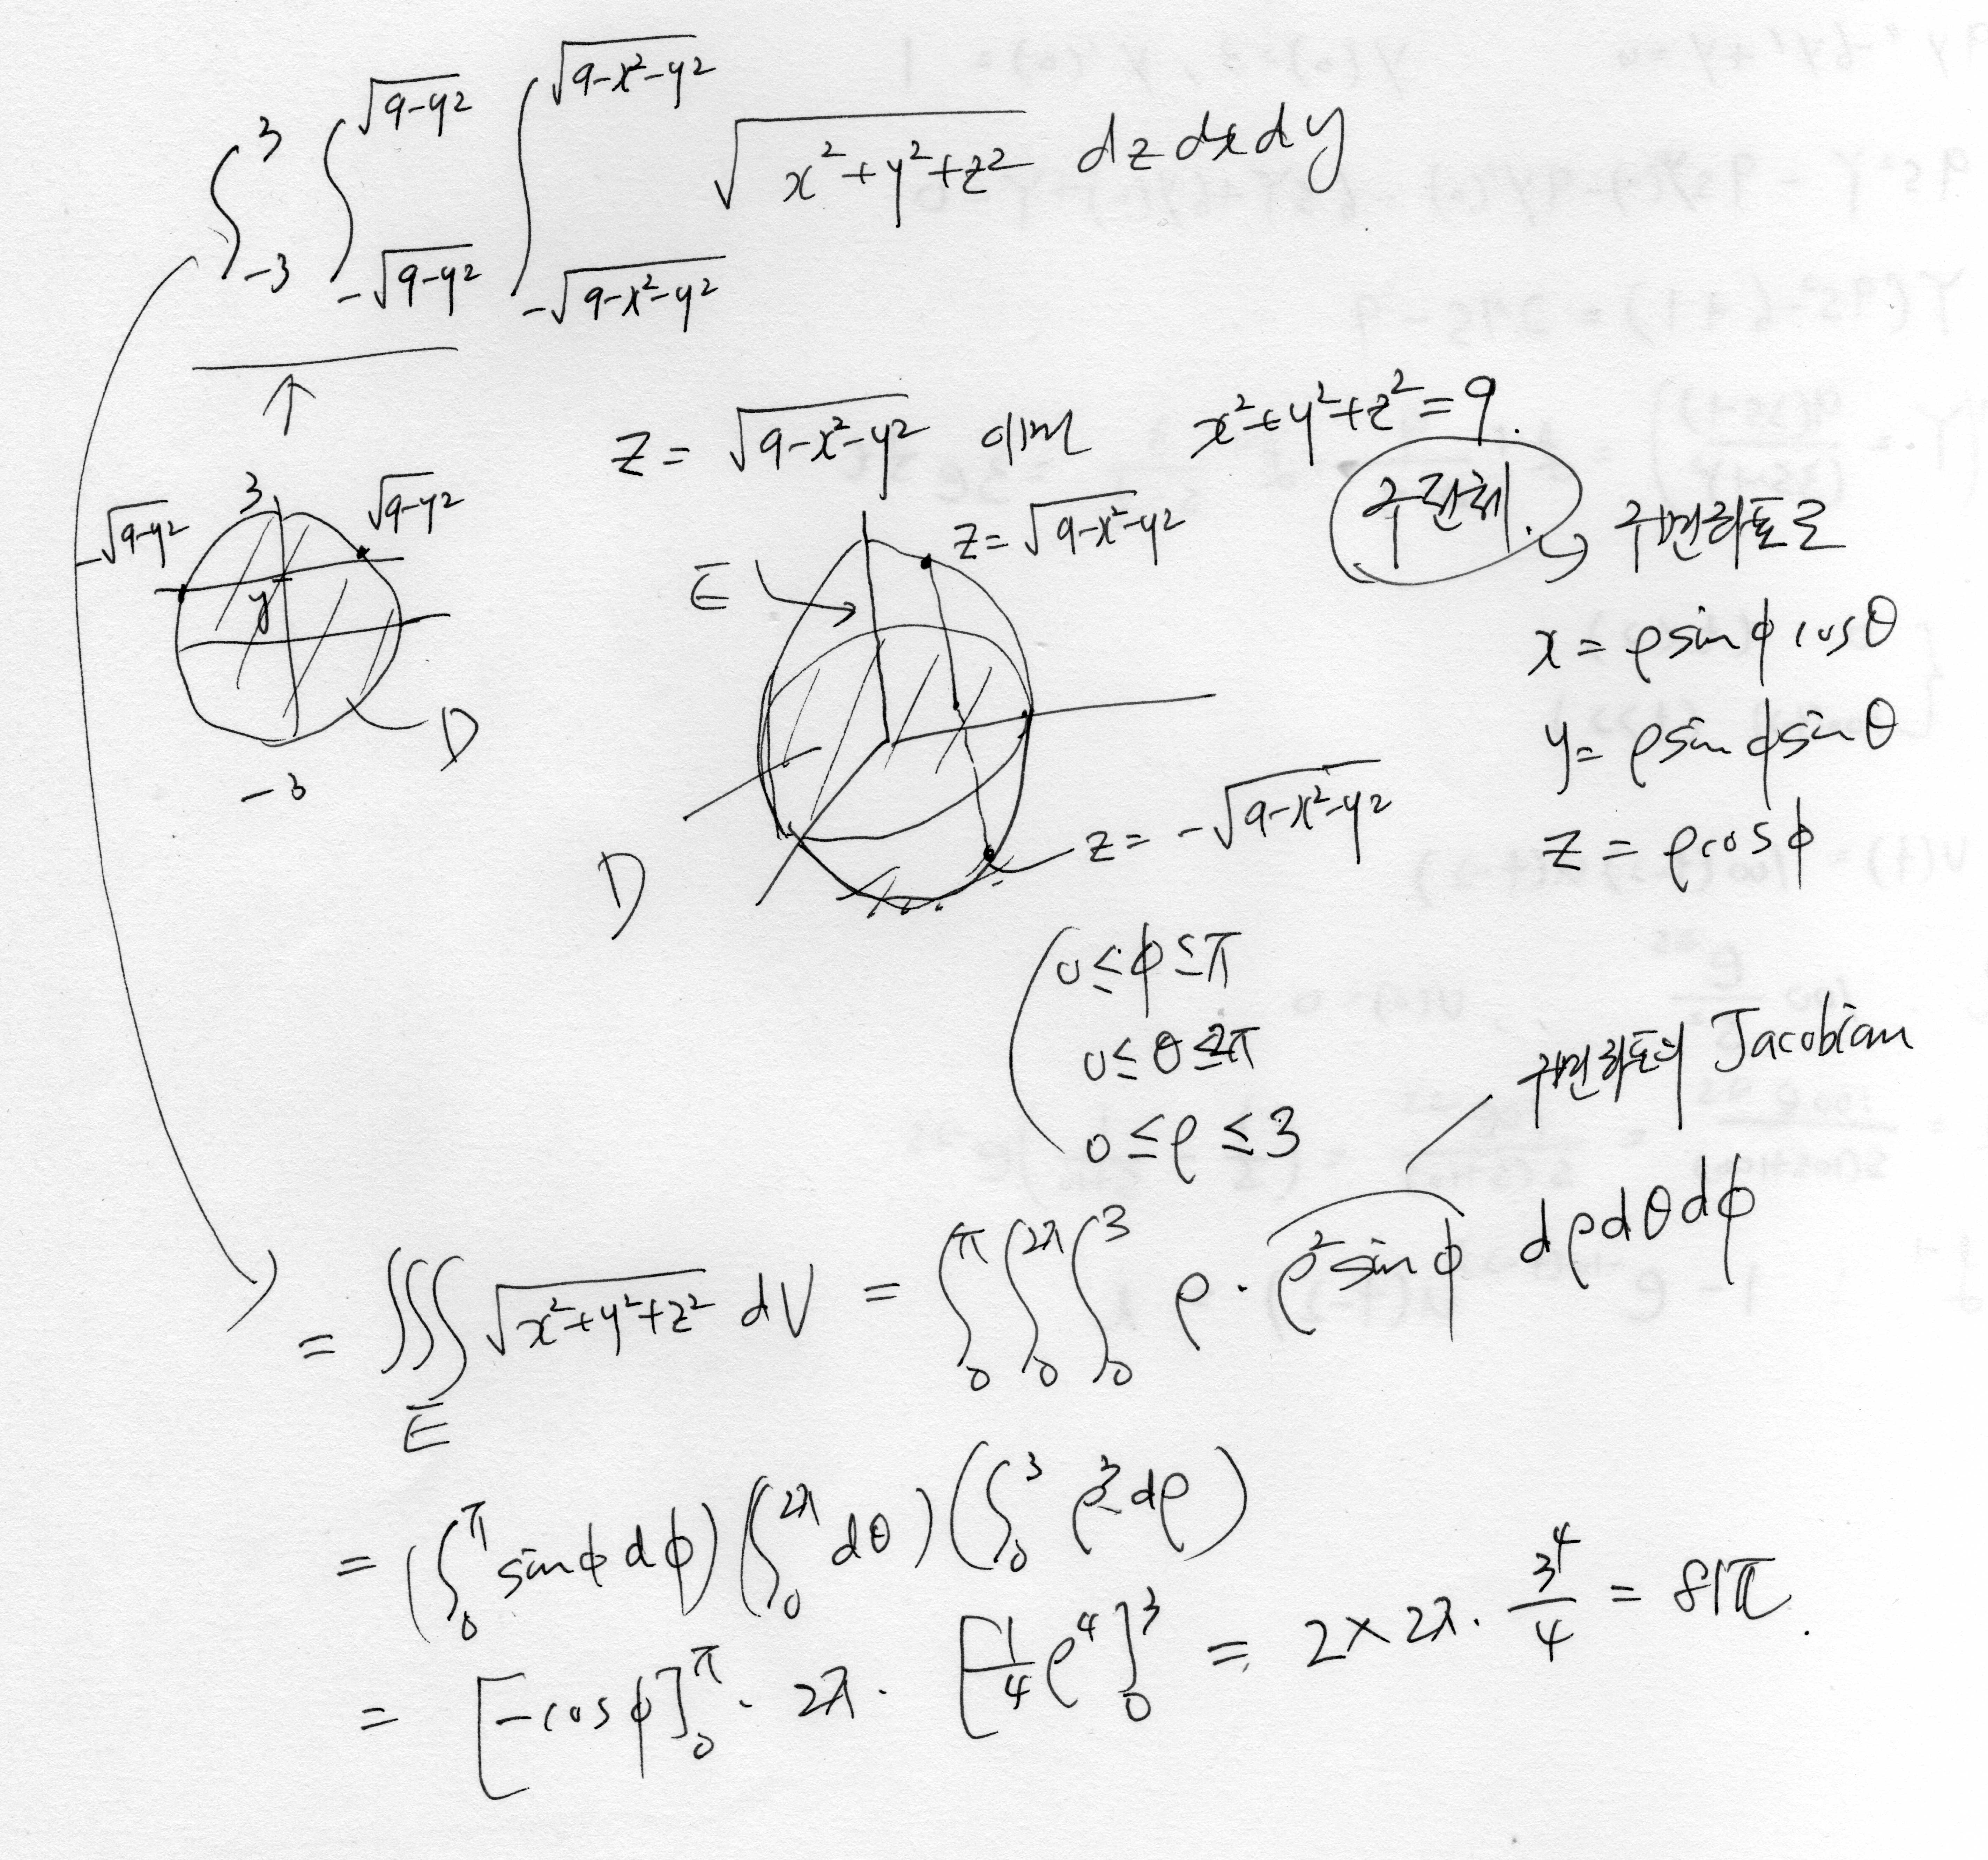 ∫_{-3}^{3} ∫_{-√(9-y²)}^{√(9-y²)} ∫_{-√(9-x²-y²)}^{√(9-x²-y²)} √(x²+y²+z²) dz dx dy
↑
z = √(9-x²-y²) 이면 x²+y²+z² = 9.
구전체.
구면좌표로
x = ρ sin φ cos θ
y = ρ sin φ sin θ
z = ρ cos φ
3
-√(9-y²)
√(9-y²)
y
D
-3
E
z = √(9-x²-y²)
z = -√(9-x²-y²)
D
0 ≤ φ ≤ π
0 ≤ θ ≤ 2π
0 ≤ ρ ≤ 3
구면좌표의 Jacobian
= ∭_E √(x²+y²+z²) dV = ∫_0^π ∫_0^{2π} ∫_0^3 ρ · ρ² sin φ dρ dθ dφ
= (∫_0^π sin φ dφ) (∫_0^{2π} dθ) (∫_0^3 ρ³ dρ)
= [-cos φ]_0^π · 2π · [1/4 ρ⁴]_0^3 = 2 × 2π · 3⁴/4 = 81π.